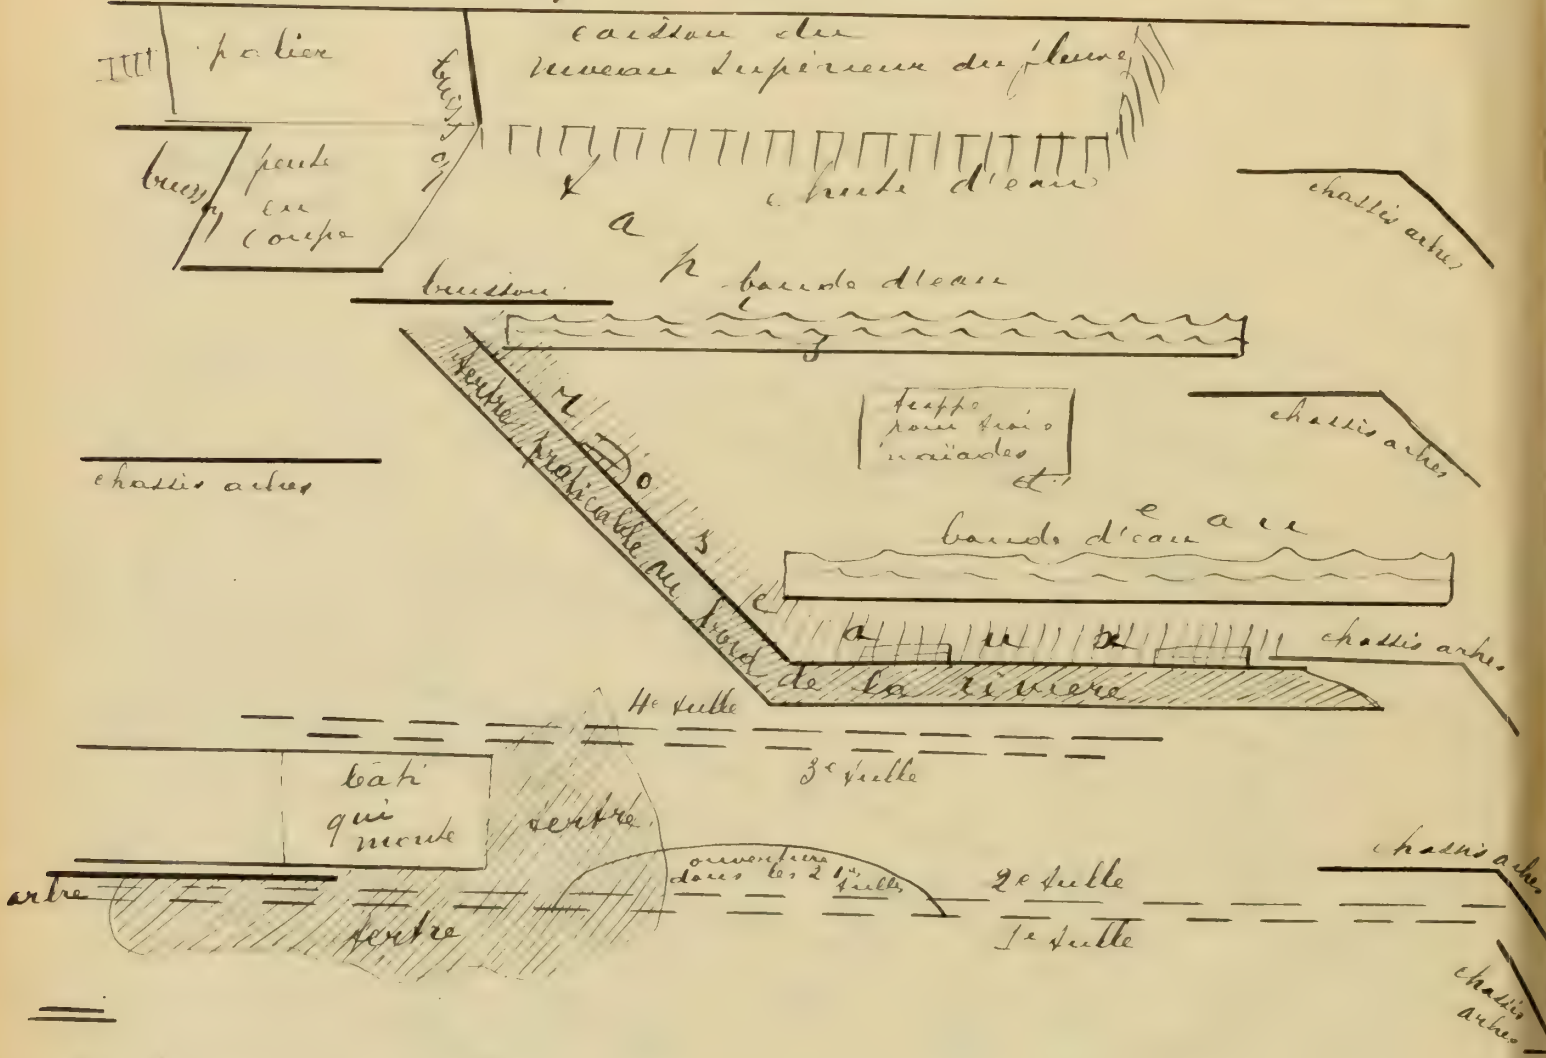 palier
caisson du
niveau supérieur du fleuve
buisson
buisson
pente
en
coupe
chute d'eau
chassis arbres
buisson
bande d'eau
tertre praticable au bord de la rivière
roseaux
trappe
pour trois
naïades
chassis arbres
chassis arbres
eau
bande d'eau
chassis arbres
4e tulle
3e tulle
bâti
qui
monte
tertre
ouverture
dans les 2 1ers tulles
2e tulle
1e tulle
chassis arbres
arbre
tertre
chassis
arbres